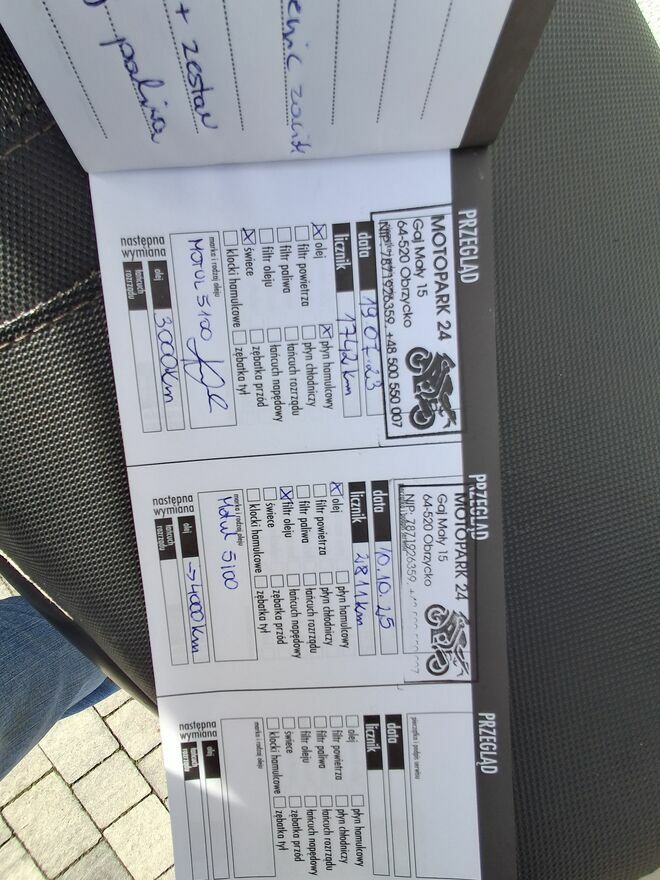 zestaw
paliwa
PRZEGLĄD
MOTOPARK 24
Gaj Mały 15
64-520 Obrzycko
NIP: 7871926359, +48 500 550 007
data 19.07.23
licznik 1742 km
☒ olej ☒ płyn hamulcowy
☐ filtr powietrza ☐ płyn chłodniczy
☐ filtr paliwa ☐ łańcuch rozrządu
☐ filtr oleju ☐ łańcuch napędowy
☒ świece ☐ zębatka przód
☐ klocki hamulcowe ☐ zębatka tył
marka i rodzaj oleju
MOTUL 5100
następna wymiana
olej 3000km
łańcuch rozrządu
PRZEGLĄD
MOTOPARK 24
Gaj Mały 15
64-520 Obrzycko
NIP: 7871926359,
data 10.10.25
licznik 2811km
☒ olej ☐ płyn hamulcowy
☐ filtr powietrza ☐ płyn chłodniczy
☐ filtr paliwa ☐ łańcuch rozrządu
☒ filtr oleju ☐ łańcuch napędowy
☐ świece ☐ zębatka przód
☐ klocki hamulcowe ☐ zębatka tył
marka i rodzaj oleju
Motul 5100
następna wymiana
olej → 4000km
łańcuch rozrządu
PRZEGLĄD
pieczątka i podpis serwisu
data
licznik
☐ olej ☐ płyn hamulcowy
☐ filtr powietrza ☐ płyn chłodniczy
☐ filtr paliwa ☐ łańcuch rozrządu
☐ filtr oleju ☐ łańcuch napędowy
☐ świece ☐ zębatka przód
☐ klocki hamulcowe ☐ zębatka tył
marka i rodzaj oleju
następna wymiana
olej
łańcuch rozrządu